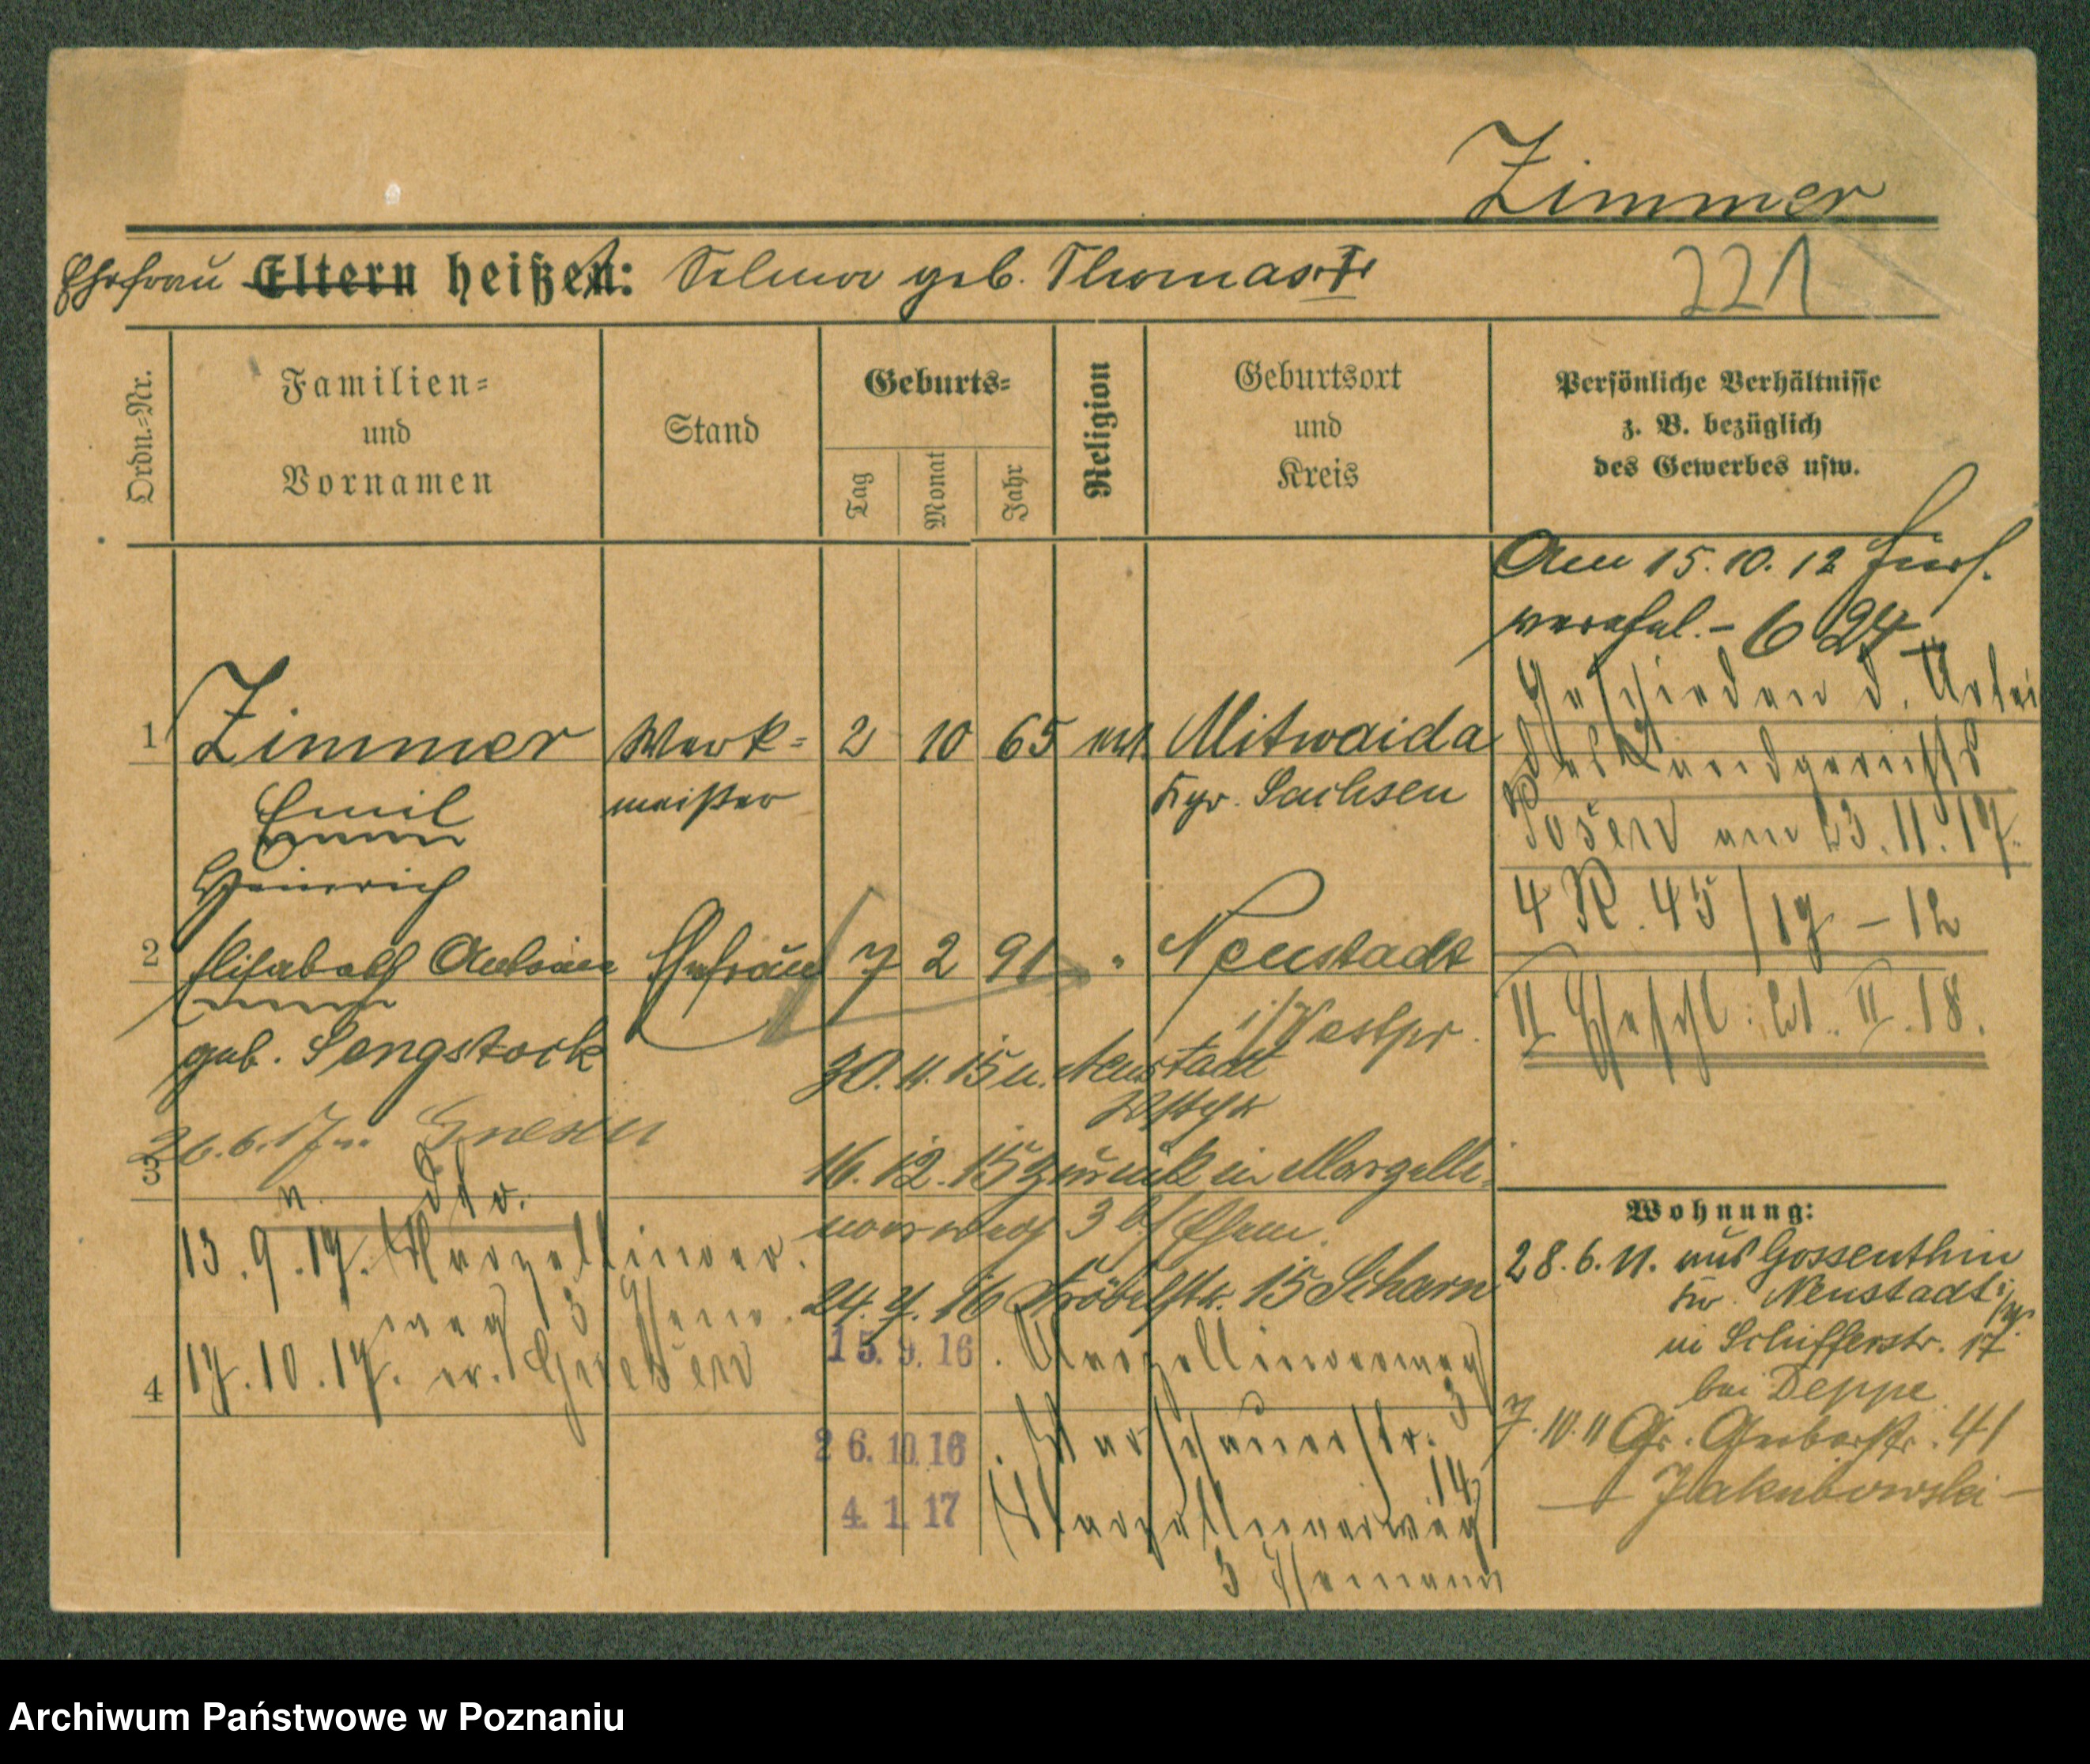 Zimmer
Ehefrau Eltern heißen: Selma geb. Thomas †
221
Ordn.-Nr.
Familien-
und
Vornamen
Stand
Geburts-
Tag
Monat
Jahr
Religion
Geburtsort
und
Kreis
Persönliche Verhältnisse
z. B. bezüglich
des Gewerbes usw.
Am 15.10.12 hies.
verehel. - 624
Geschieden d. Urtei
des Landgerichts
Posen am 23.11.17.
4 R. 45/17 - 12
1 Zimmer Werk- 2 10 65 ev. Mitwaida
Emil meister Kgr. Sachsen
Heinrich
2 Elisabeth Ehefrau 7 2 91 " Neustadt
geb. Sengstock i/Westpr.
30.11.15 n. Neustadt
Wstpr
26.6.17 n. Gnesen
3
16.12.15 zurück in
24. 16 Fröbelstr. 15 Scharn
13.9.17.
15. 9. 16
17.10.17. Gnesen
4
26. 10. 16
14
4. 1. 17
3
Wohnung:
28.6.11. aus Gossenthin
Kr. Neustadt
in Schifferstr. 17
bei Deppe
7.10.11 Gr. Gerberstr. 41
Jakubowski
Archiwum Państwowe w Poznaniu